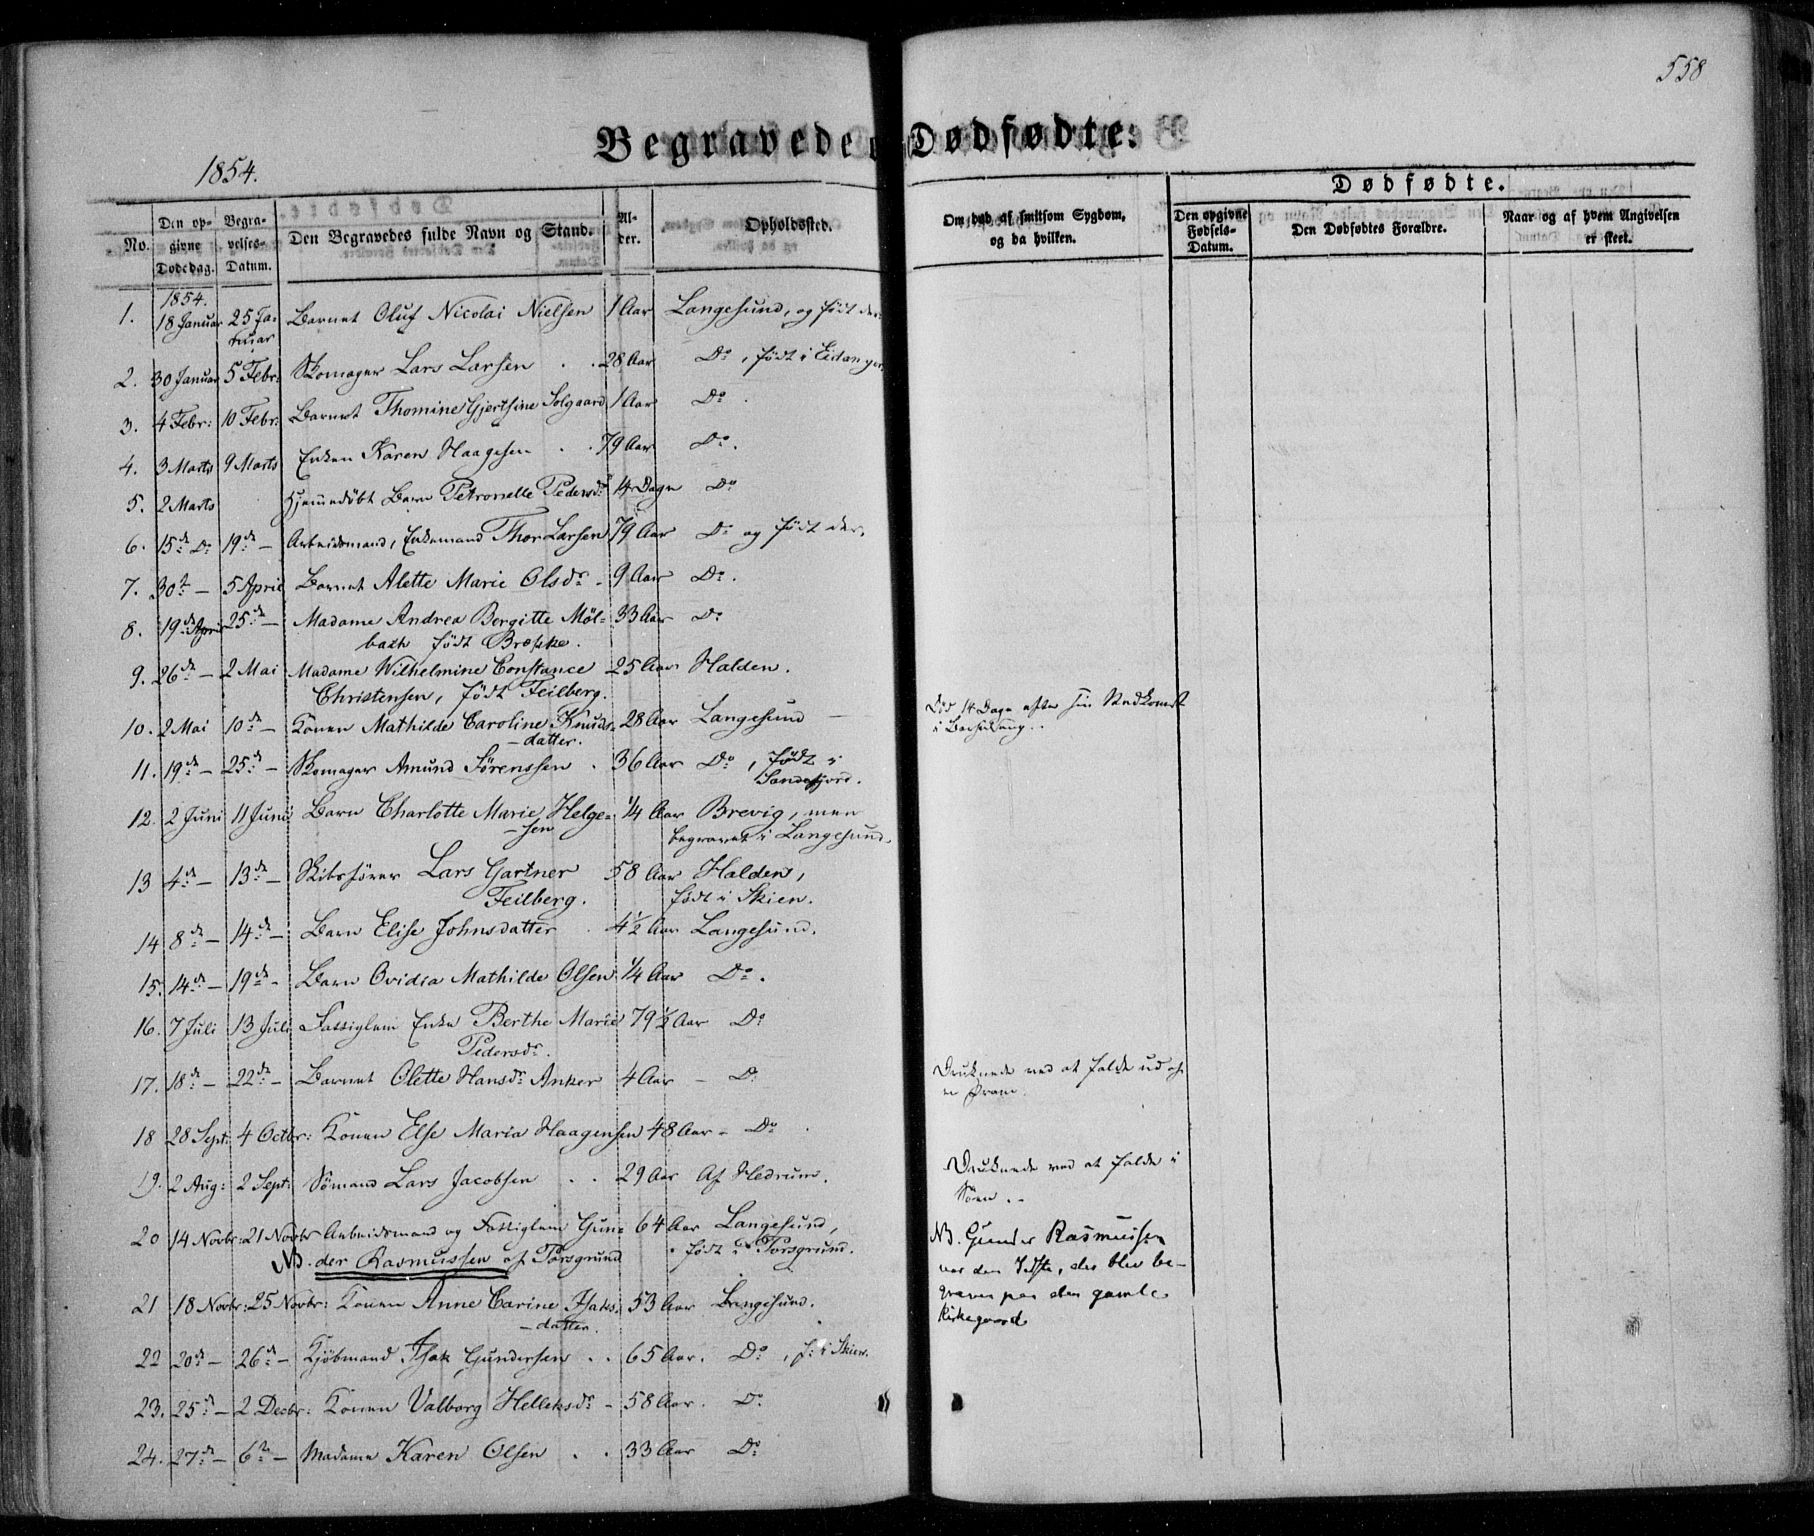 558
Begravede og Dødfødte.
1854.
Dødfødte.
No. Den opgivne Dødsdag. Begravelses-Datum. Den Begravedes fulde Navn og Stand. Alder. Opholdssted. Om død af smitsom Sygdom, og da hvilken. Den opgivne Fødsels-Datum. Den Dødfødtes Forældre. Naar og af hvem Angivelsen er skeet.
1854.
1. 18 Januar 25 Januar Barnet Oluf Nicolai Nielsen 1 Aar Langesund, og født der.
2. 30 Januar 5 Febr: Skomager Lars Larsen 28 Aar Do, født i Eidanger.
3. 4 Febr: 10 Febr: Barnet Thomine Gjertsine Solgaard 1 Aar Do.
4. 3 Marts 9 Marts Enken Karen Haagesen 79 Aar Do.
5. 2 Marts Hjemmedøbt Barn Petronelle Pedersdr 14 Dage Do
6. 15de Do 19de — Arbeidsmand, Enkemand Thor Larsen 79 Aar Do og født der.
7. 30te — 5 April Barnet Alette Marie Olsdr. 9 Aar Do.
8. 19de April 25de — Madame Andrea Bergitte Møl- 33 Aar Do
bach født Brekke.
9. 26de — 2 Mai Madame Wilhelmine Constance 25 Aar Halden.
Christensen, født Feilberg.
10. 2 Mai 10de — Konen Mathilde Caroline Knuds- 28 Aar Langesund — Død 14 Dage efter sin Nedkomst
datter. i Barselseng.
11. 19de — 25de — Skomager Amund Sørenssen 36 Aar Do, født i
Sandefjord.
12. 2 Juni 11 Juni Barn Charlotte Marie Helge- 1/4 Aar Brevig, men
sen begravet i Langesund.
13 4de — 13de — Skibsfører Lars Gartner 58 Aar Halden,
Feilberg. født i Skien.
14 8de — 14de — Barn Elise Johnsdatter 4½ Aar Langesund.
15. 14de — 19de — Barn Ovidia Mathilde Olsen 1/4 Aar Do.
16. 7 Juli 13 Juli Fattiglem Enke Berthe Marie 79½ Aar Do
Pedersdr.
17. 18de — 22de — Barnet Olette Hansdr Anker 4 Aar — Do Druknede ved at falde ud af
en Pram.
18 28 Sept: 4 Octbr: Konen Else Maria Haagensen 48 Aar — Do
19. 2 Aug: 2 Sept: Sømand Lars Jacobsen 29 Aar Af Hedrum. Druknede ved at falde i
Søen.
20 14 Novbr: 21 Novbr Arbeidsmand og Fattiglem Gun- 64 Aar Langesund,
NB. der Rasmussen af Porsgrund født i Porsgrund.
NB. Gunder Rasmussen
var den sidste, der blev be-
graven paa den gamle
Kirkegaard
21 18 Novbr: 25 Novbr: Konen Anne Carine Isaks- 53 Aar Langesund.
datter.
22 20de — 26de — Kjøbmand Isak Gundersen 65 Aar. Do, f: i Skien.
23. 25de — 2 Decbr: Konen Valborg Helleksdr — 58 Aar. Do
24. 27de — 6te — Madame Karen Olsen 33 Aar Do